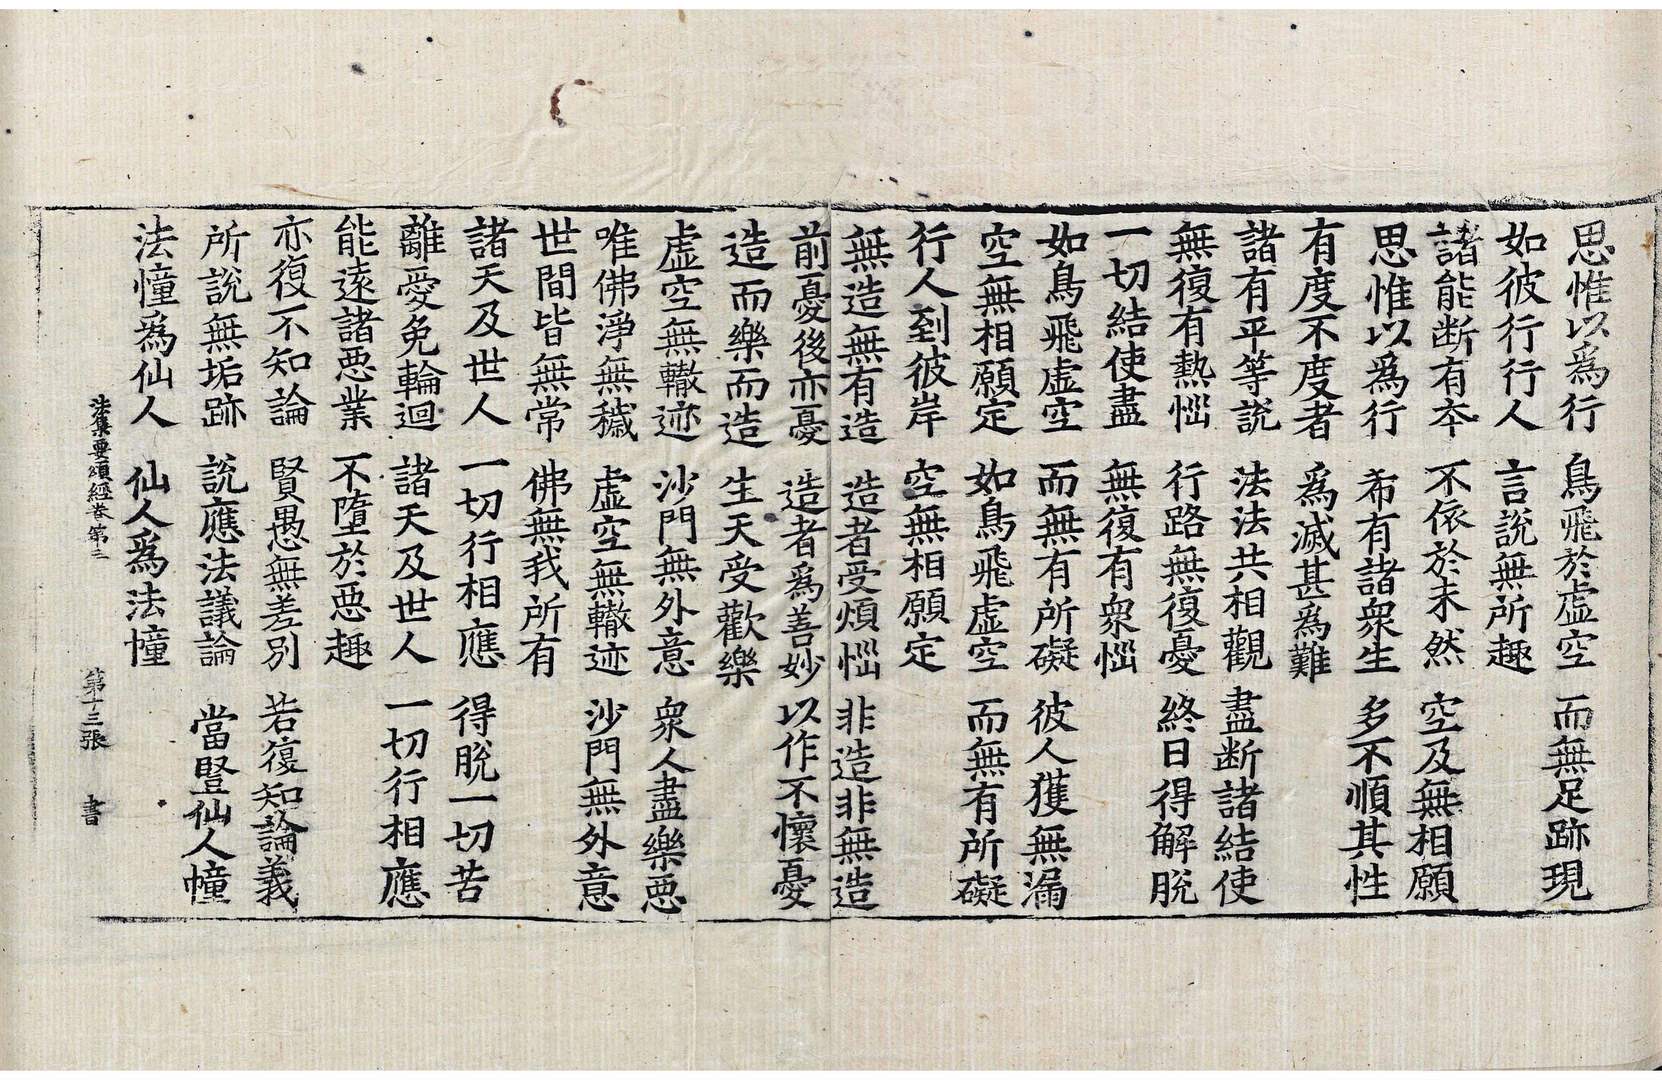 思惟以為行　鳥飛於虛空　而無足跡現
如彼行行人　言說無所趣
諸能断有本　不依於未然　空及無相願
思惟以為行　希有諸衆生　多不順其性
有度不度者　為滅甚為難
諸有平等說　法法共相觀　盡断諸結使
無復有熱惱　行路無復憂　終日得解脫
一切結使盡　無復有衆惱
如鳥飛虛空　而無有所礙　彼人獲無漏
空無相願定　如鳥飛虛空　而無有所礙
行人到彼岸　空無相願定
無造無有造　造者受煩惱　非造非無造
前憂後亦憂　造者為善妙　以作不懷憂
造而樂而造　生天受歡樂
虛空無轍迹　沙門無外意　衆人盡樂惡
唯佛淨無穢　虛空無轍迹　沙門無外意
世間皆無常　佛無我所有
諸天及世人　一切行相應　得脫一切苦
離愛免輪迴　諸天及世人　一切行相應
能遠諸惡業　不墮於惡趣
亦復不知論　賢愚無差別　若復知論義
所說無垢跡　說應法議論　當豎仙人幢
法幢為仙人　仙人為法幢
法集要頌經卷第三　第十三張　書